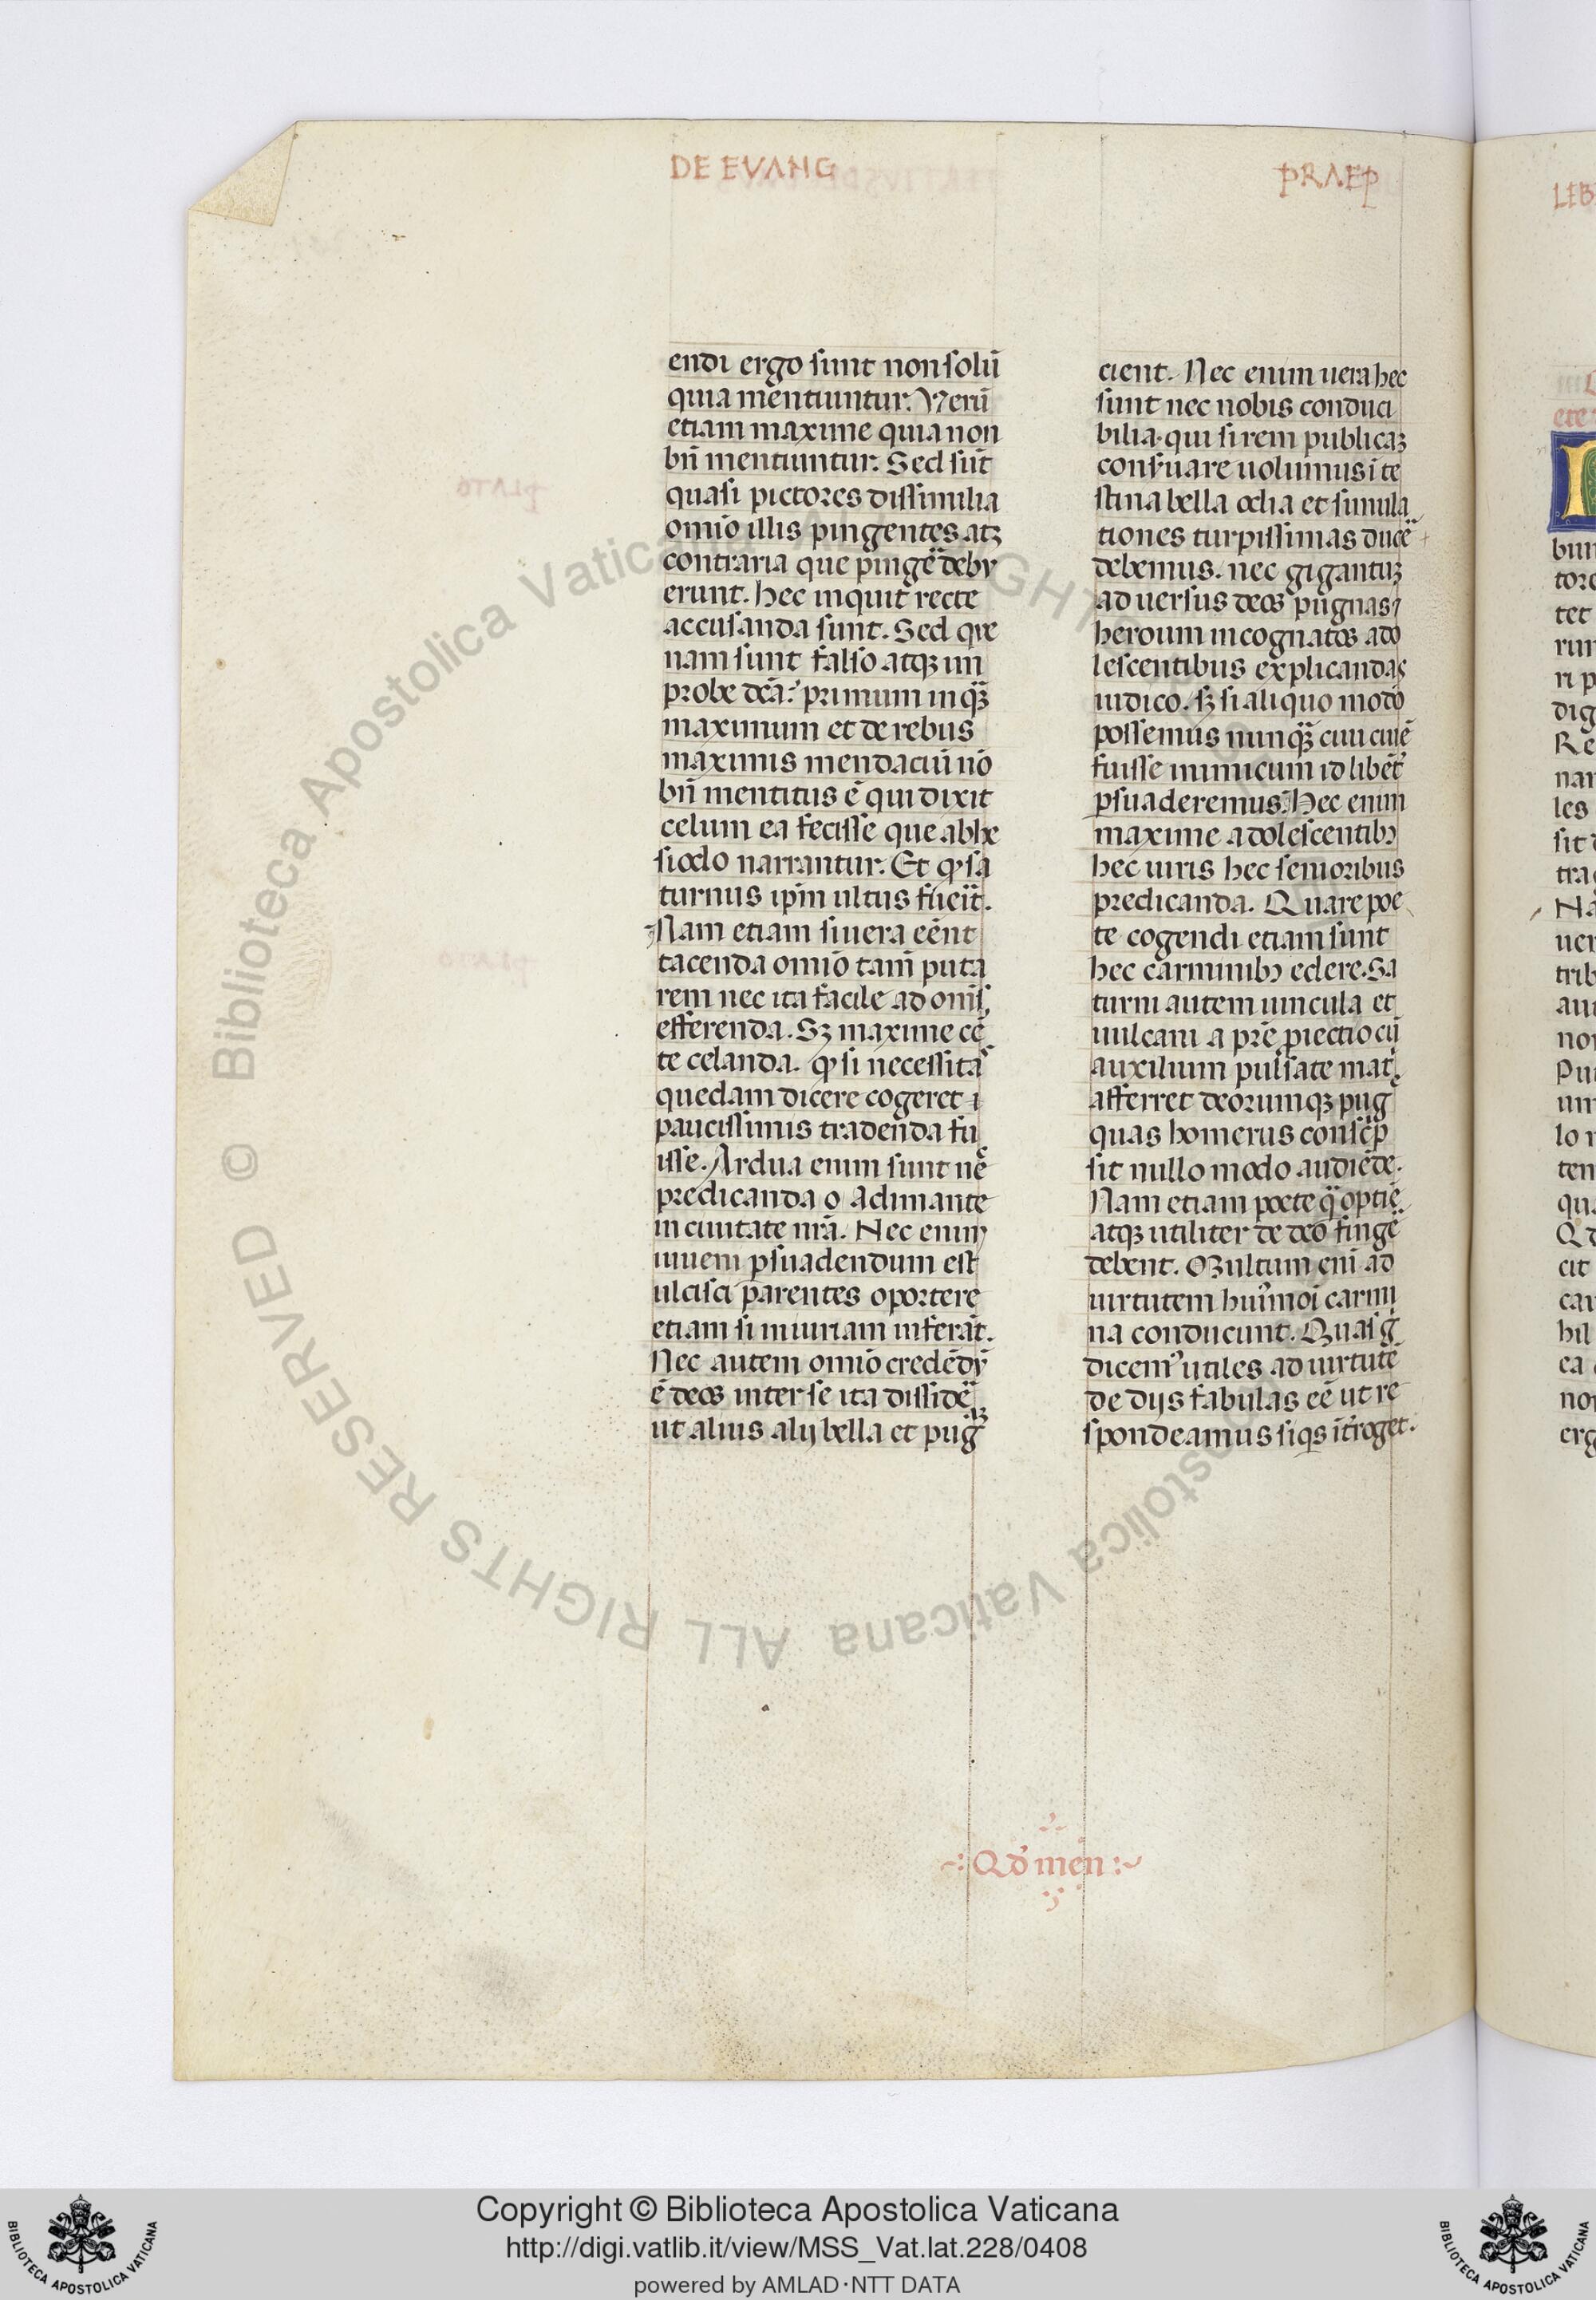 DE EVANG
PRAEP
endi ergo sunt non solū
quia mentiuntur. Verū
etiam maxime quia non
bñ mentiuntur. Sed sūt
quasi pictores dissimilia
omīo illis pingentes atqꝫ
contraria que pingē deby
erunt. hec inquit recte
accusanda sunt. Sed que
nam sunt falso atqꝫ im
probe dcā? primum inqꝫ
maximum et de rebus
maximis mendaciū nō
bñ mentitus ē qui dixit
celum ea fecisse que ab he
siodo narrantur. Et qꝫ sa
turnus ipm ultus fucīt.
Nam etiam si uera eēnt
tacenda omīo tam puta
rem nec ita facile ad omīs
efferenda. Sꝫ maxime cē
te celanda. qꝫ si necessitas
quedam dicere cogeret ī
paucissimis tradenda fu
isse. Ardua enim sunt nec
predicanda o Adimante
in ciuitate nrā. Nec enim
iuuem psuadendum est
ulcisci parentes oportere
etiam si iniuriam inferāt.
Nec autem omīo credēdy
ē deos inter se ita dissidē
ut alius alij bella et pug
cient. Nec enim uera hec
sunt nec nobis conduci
bilia. qui si rem publicaꝫ
conſuare uolumus īte
stina bella odia et simula
tiones turpissimas ducē
debemus. nec gigantuꝫ
aduersus deos pugnas ⁊
heroum in cognatos ado
lescentibus explicandas
iudico. sꝫ si aliquo modo
possemus nunqꝫ ciui ciuē
fuisse inimicum id libēt
psuaderemus. Hec enim
maxime adolescentibꝫ
hec uiris hec senioribus
predicanda. Quare poe
te cogendi etiam sunt
hec carminibꝫ edere. Sa
turni autem uincula et
uulcani a prē piectio cū
auxilium pulsate matri
afferret deorumqꝫ pug
quas homerus conscrip
sit nullo modo audiēde.
Nam etiam poete qꝫ optīe
atqꝫ utiliter de deo fingē
debent. Multum enī ad
uirtutem huīmoī carmi
na conducunt. Quas g
dicemꝰ utiles ad uirtutē
de dijs fabulas eē ut re
spondeamus siqs ītroget.
Qd' men
Copyright © Biblioteca Apostolica Vaticana
http://digi.vatlib.it/view/MSS_Vat.lat.228/0408
powered by AMLAD·NTT DATA
BIBLIOTECA APOSTOLICA VATICANA
BIBLIOTECA APOSTOLICA VATICANA
© Biblioteca Apostolica Vaticana ALL RIGHTS RESERVED